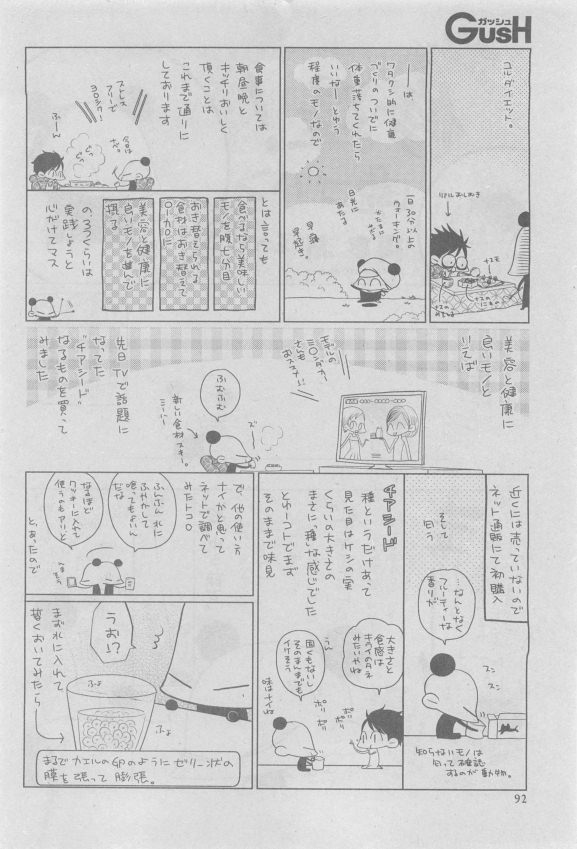 ガッシュ
GUSH
ユルダイエット。
リアルおしむぎ
ナスモ
ナスの
にもの
ナスの
めでしま
――は
ワタクシ的に健康
づくりのついでに
体重落ちてくれたら
いいなーとゆう
程度のモノなので
一日30分以上の
ウォーキング。
日光に
あたる
早寝
早起き。
食事については
朝昼晩と
キッチリおいしく
頂くことは
これまで通りに
しております
ストレス
フリーで
ヨロシク!
ふーん
とは言っても
食べるなら美味しい
モノを腹七分目
おき替えられる
食材はおき替えて
ローカロに
美容と健康に
良いモノを進んで
摂る
の3つくらいは
実践しようと
心がけてマス
美容と健康に
良いモノと
いえば
モデルの
ミ○ンダ・カー
さんも
おススメ!!
ふむふむ
新しい食材スキー。
ミーハー
先日TVで話題に
なってた
“チアシード”
なるものを買って
みました
近くには売っていないので
ネット通販にて初購入
そして
匂う
…なんとなく
フルーティーな
香りが
スン
スン
知らないモノは
匂って確認
するのが動物。
チアシード
種というだけあって
見た目はケシの実
くらいの大きさの
まさに「種」な感じでした
とゆーコトでまず
そのままで味見
大きさと
食感は
キウイのタネ
みたいやね
うん
固くもないし
そのまんまでも
イケそう
ポリ
ポリ
ポリ
ポリ
味はナイね
で、他の使い方
ナイかと思って
ネットで調べて
みたトコロ
ふんふん水に
ふやかして
喰ってもよいん
だな
なるほど
クッキーに入れて
使うのもアリと
と、あったので
まず水に入れて
暫くおいてみたら
うお!?
ふよ
ふよ
まるでカエルの卵のようにゼリー状の
膜を張って膨張。
92